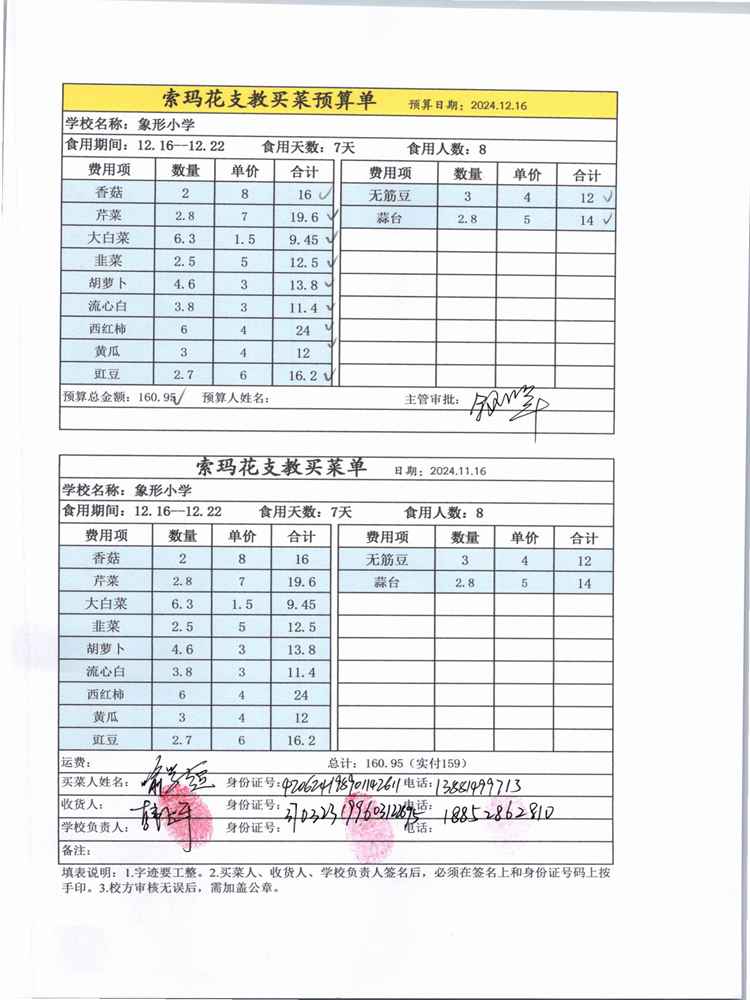 索玛花支教买菜预算单 预算日期：2024.12.16
学校名称：象形小学
食用期间：12.16--12.22 食用天数：7天 食用人数：8
费用项 数量 单价 合计 费用项 数量 单价 合计
香菇 2 8 16 无筋豆 3 4 12
芹菜 2.8 7 19.6 蒜台 2.8 5 14
大白菜 6.3 1.5 9.45
韭菜 2.5 5 12.5
胡萝卜 4.6 3 13.8
流心白 3.8 3 11.4
西红柿 6 4 24
黄瓜 3 4 12
豇豆 2.7 6 16.2
预算总金额：160.95 预算人姓名： 主管审批：
索玛花支教买菜单 日期：2024.11.16
学校名称：象形小学
食用期间：12.16--12.22 食用天数：7天 食用人数：8
费用项 数量 单价 合计 费用项 数量 单价 合计
香菇 2 8 16 无筋豆 3 4 12
芹菜 2.8 7 19.6 蒜台 2.8 5 14
大白菜 6.3 1.5 9.45
韭菜 2.5 5 12.5
胡萝卜 4.6 3 13.8
流心白 3.8 3 11.4
西红柿 6 4 24
黄瓜 3 4 12
豇豆 2.7 6 16.2
运费： 总计：160.95（实付159）
买菜人姓名： 身份证号： 电话：13881499713
收货人： 身份证号： 电话：18852862810
学校负责人： 身份证号： 电话：
备注：
填表说明：1.字迹要工整。2.买菜人、收货人、学校负责人签名后，必须在签名上和身份证号码上按
手印。3.校方审核无误后，需加盖公章。